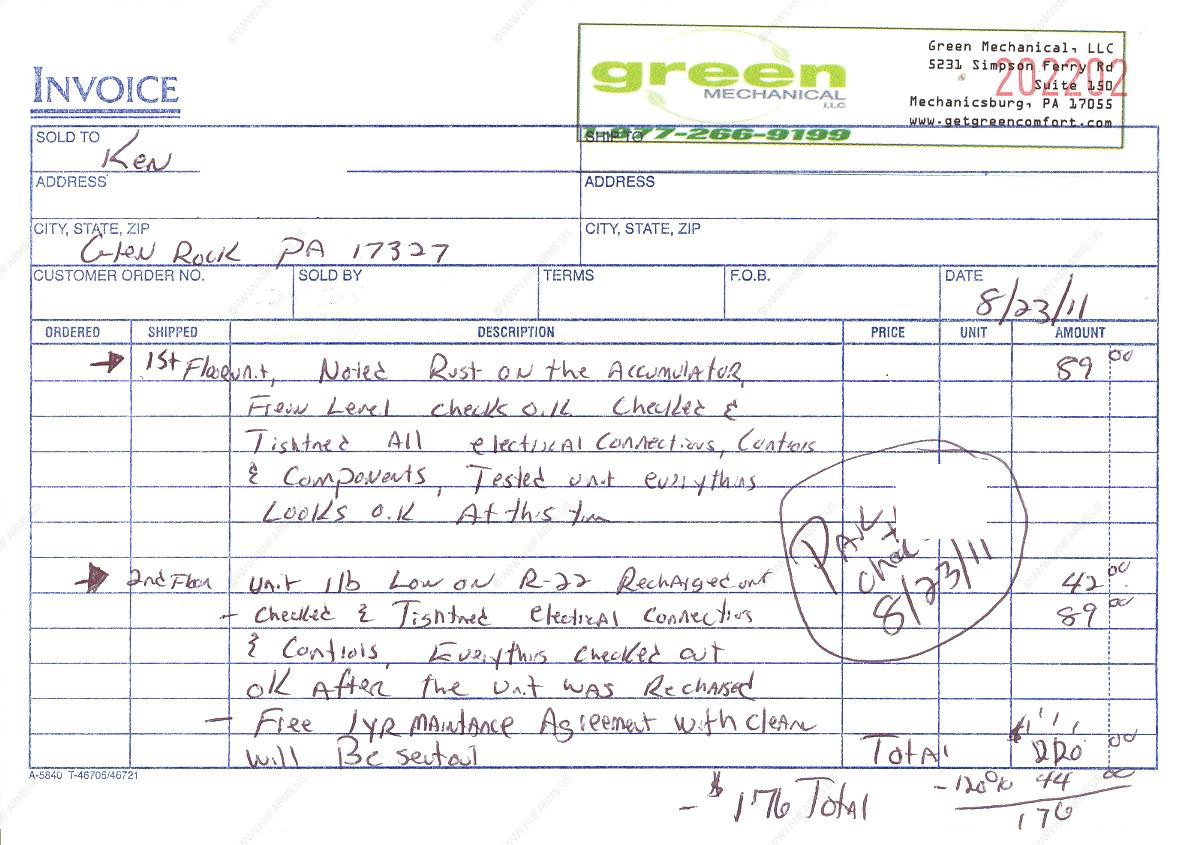 INVOICE
green
MECHANICAL
LLC
1-877-266-9199
Green Mechanical, LLC
5231 Simpson Ferry Rd
Suite 150
Mechanicsburg, PA 17055
www.getgreencomfort.com
202202
SOLD TO Ken
SHIP TO
ADDRESS
ADDRESS
CITY, STATE, ZIP Glen Rock PA 17327
CITY, STATE, ZIP
CUSTOMER ORDER NO. SOLD BY TERMS F.O.B. DATE 8/23/11
ORDERED SHIPPED DESCRIPTION PRICE UNIT AMOUNT
1st Floor unit, Noted Rust on the Accumulator, 89 00
Freon Level check o.k Checked &
Tightned All electrical Connections, Controls
& Components, Tested unit everything
Looks o.k At this tim
Paid
8/23/11
2nd Floor unit 1lb Low on R-22 Recharged unit 42 00
- Checked & Tightned electrical Connections 89 00
& Controls, Everything checked out
OK After the unit was Recharged
- Free 1yr Maintance Agreement with clean
will Be sentout Total $ 220 00
A-5840 T-46705/46721
44 00
- $ 176 Total 176
©WWW.HMFARMS.US